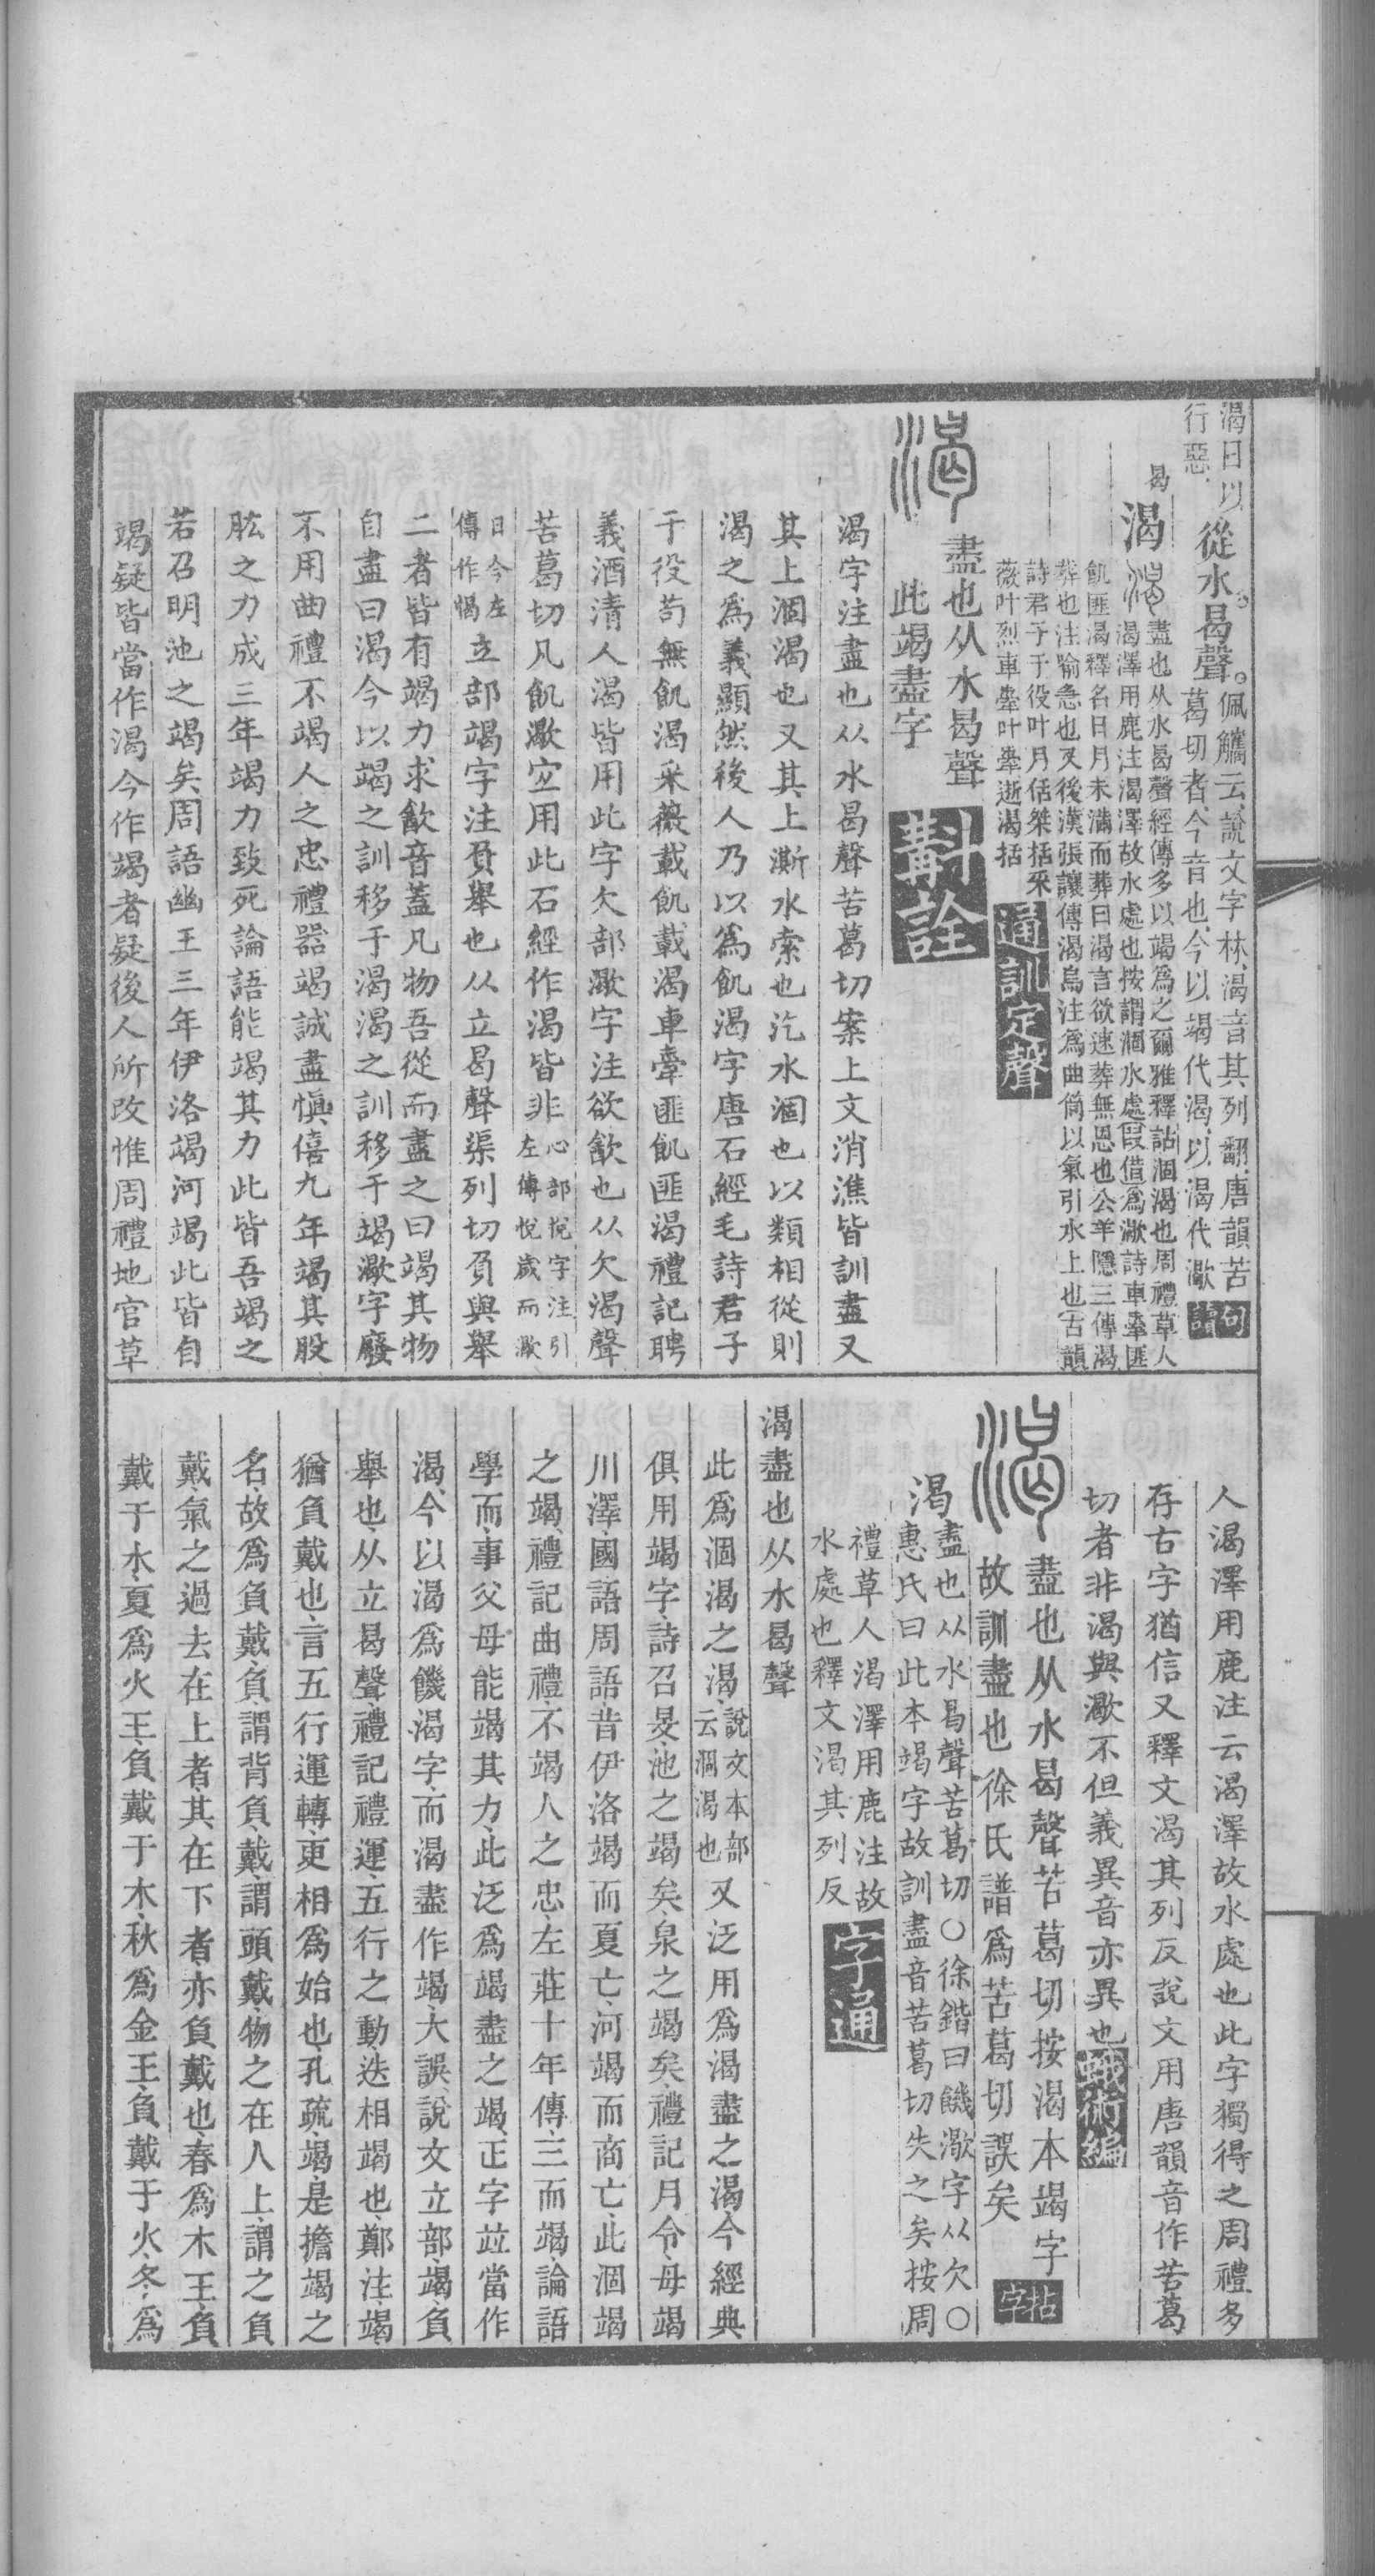 渴日以
行惡
從水曷聲
佩觿云說文字林渴音其列翻唐韻苦
葛切者今音也今以竭代渴以渴代㵣
句讀
曷
渴
盡也从水曷聲經傳多以竭爲之爾雅釋詁涸渴也周禮草人
渴澤用鹿注渴澤故水處也按謂涸水處叚借爲㵣詩車舝匪
飢匪渴釋名日月未滿而葬曰渴言欲速葬無恩也公羊隱三傳渴
葬也注喻急也又後漢張讓傳渴烏注爲曲筒以氣引水上也古韻
詩君子于役叶月佸桀括采
薇叶烈車舝叶舝逝渴括
通訓定聲
盡也从水曷聲
此竭盡字
斠詮
渴字注盡也从水曷聲苦葛切案上文消潐皆訓盡又
其上涸渴也又其上澌水索也汔水涸也以類相從則
渴之爲義顯然後人乃以爲飢渴字唐石經毛詩君子
于役苟無飢渴采薇載飢載渴車舝匪飢匪渴禮記聘
義酒清人渴皆用此字欠部㵣字注欲歠也从欠渴聲
苦葛切凡飢㵣宜用此石經作渴皆非
心部忨字注引
左傳忨歲而㵣
日今左
傳作愒
立部竭字注負舉也从立曷聲渠列切負與舉
二者皆有竭力求歠音蓋凡物吾從而盡之曰竭其物
自盡曰渴今以竭之訓移于渴渴之訓移于竭㵣字廢
不用曲禮不竭人之忠禮器竭誠盡慎僖九年竭其股
肱之力成三年竭力致死論語能竭其力此皆吾竭之
若召明池之竭矣周語幽王三年伊洛竭河竭此皆自
竭疑皆當作渴今作竭者疑後人所改惟周禮地官草
人渴澤用鹿注云渴澤故水處也此字獨得之周禮多
存古字猶信又釋文渴其列反說文用唐韻音作苦葛
切者非渴與㵣不但義異音亦異也
蛾術編
盡也从水曷聲苦葛切按渴本竭字
故訓盡也徐氏譜爲苦葛切誤矣
拈字
渴
盡也从水曷聲苦葛切○徐鍇曰饑㵣字从欠○
惠氏曰此本竭字故訓盡音苦葛切失之矣按周
禮草人渴澤用鹿注故
水處也釋文渴其列反
字通
渴盡也从水曷聲
此爲涸渴之渴
說文本部
云涸渴也
又泛用爲渴盡之渴今經典
俱用竭字詩召旻池之竭矣泉之竭矣禮記月令毋竭
川澤國語周語昔伊洛竭而夏亡河竭而商亡此涸竭
之竭禮記曲禮不竭人之忠左莊十年傳三而竭論語
學而事父母能竭其力此泛爲竭盡之竭正字竝當作
渴今以渴爲饑渴字而渴盡作竭大誤說文立部竭負
舉也从立曷聲禮記禮運五行之動迭相竭也鄭注竭
猶負戴也言五行運轉更相爲始也孔疏竭是擔竭之
名故爲負戴負謂背負戴謂頭戴物之在人上謂之負
戴氣之過去在上者其在下者亦負戴也春爲木王負
戴于水夏爲火王負戴于木秋爲金王負戴于火冬爲